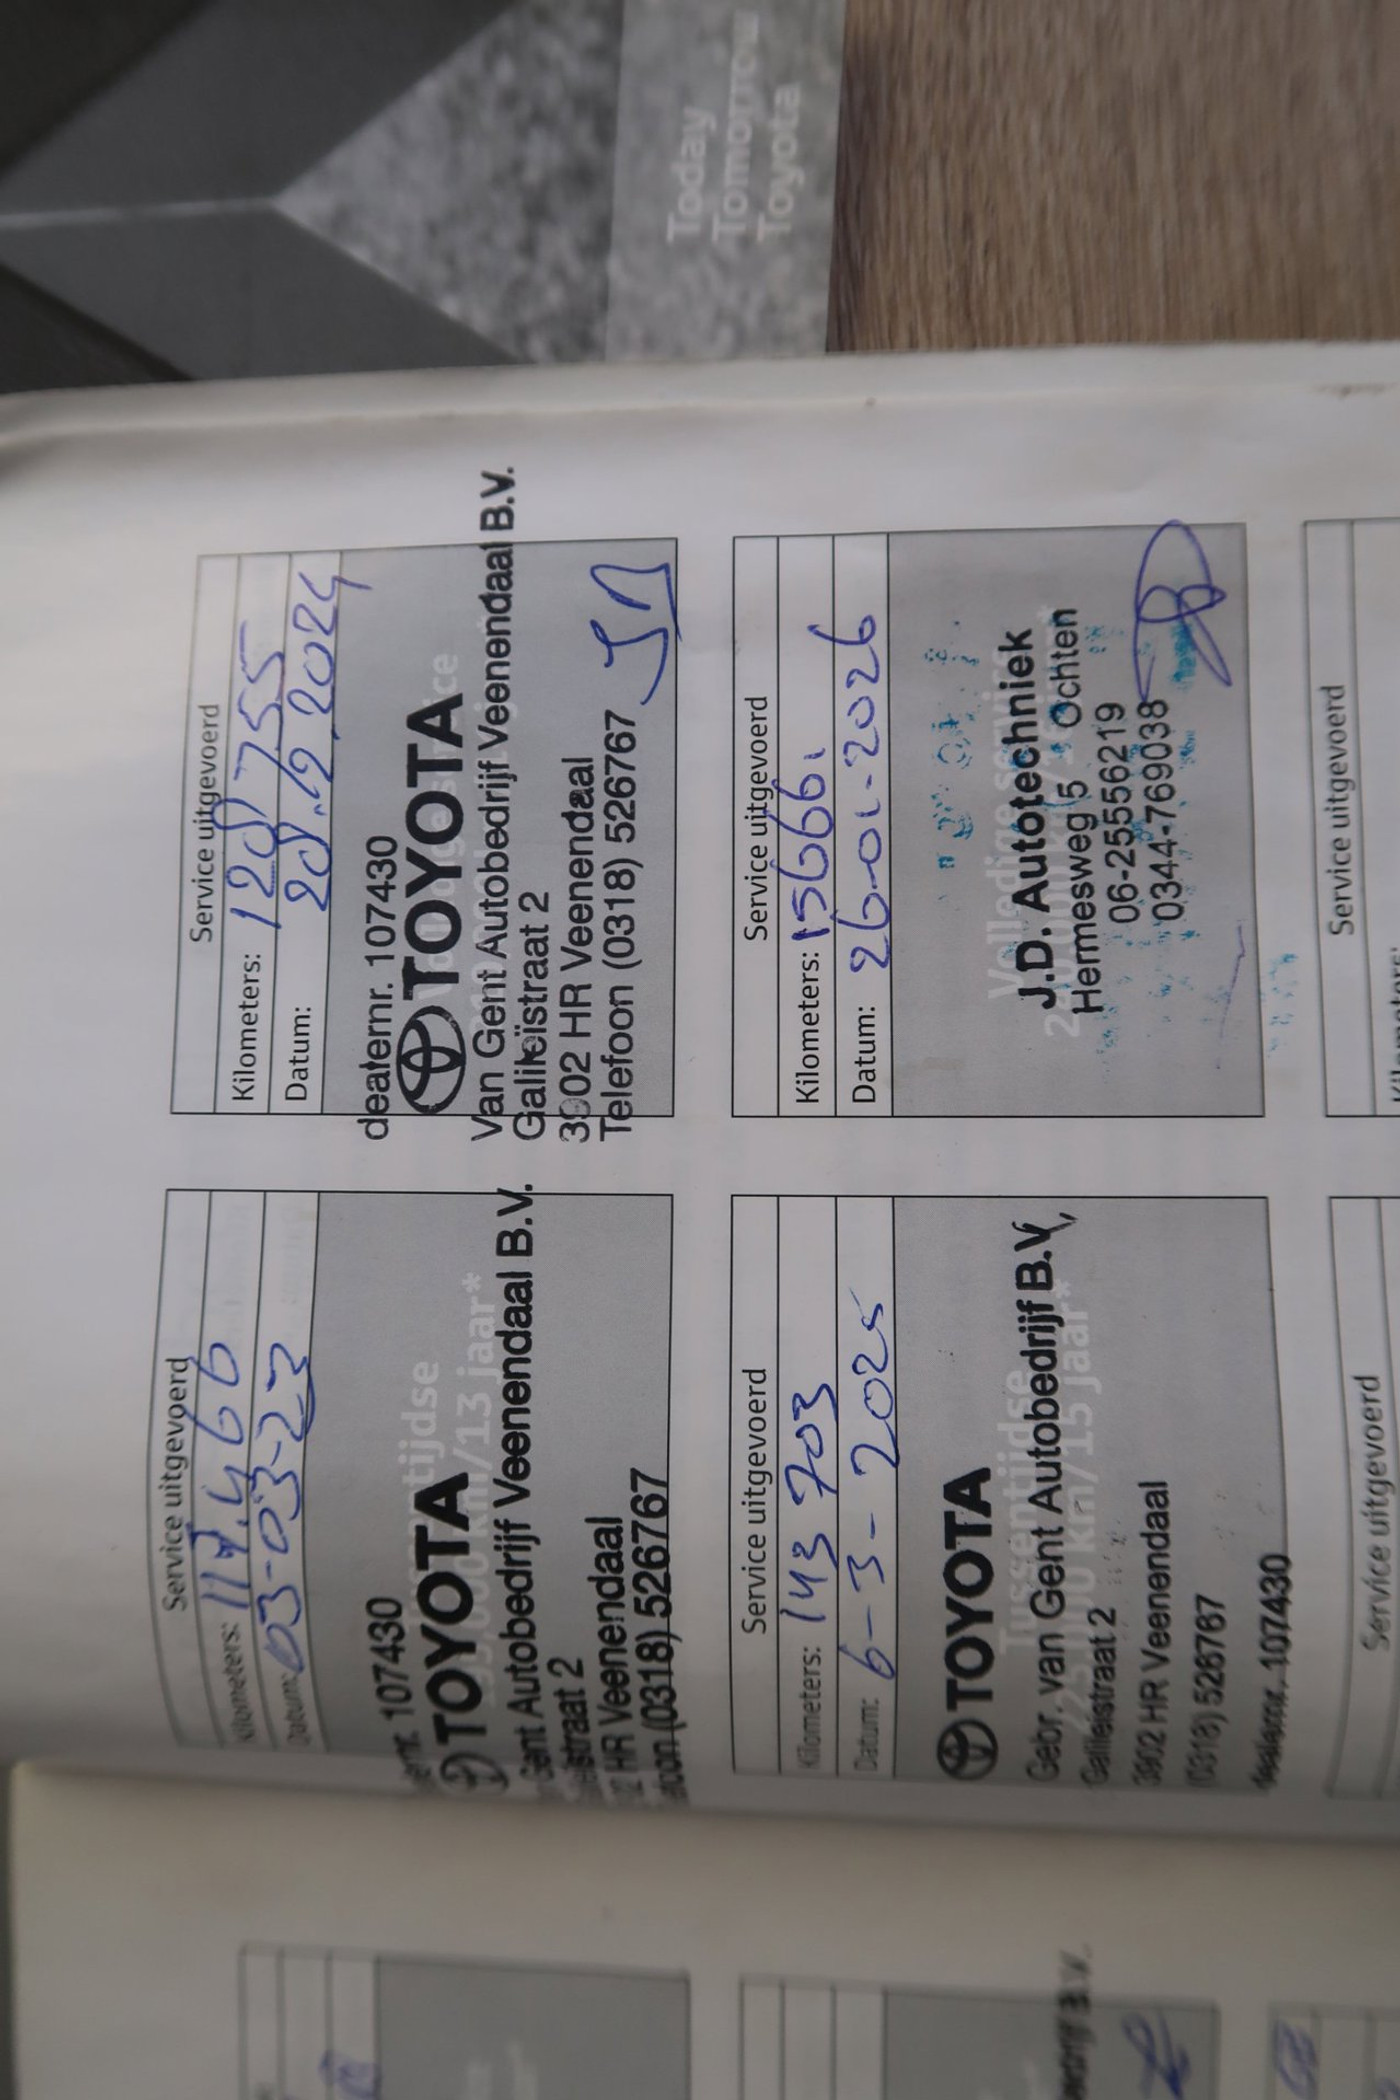 Today
Tomorrow
Toyota
Service uitgevoerd
Kilometers: 117.466
Datum: 03-03-23
107430
TOYOTA
Gent Autobedrijf Veenendaal B.V.
straat 2
HR Veenendaal
(0318) 526767
Service uitgevoerd
Kilometers: 128755
Datum:
dealernr. 107430
TOYOTA
Van Gent Autobedrijf Veenendaal B.V.
Galileïstraat 2
3902 HR Veenendaal
Telefoon (0318) 526767
Service uitgevoerd
Kilometers: 143 703
Datum: 6-3-2025
TOYOTA
Tussentijdse
Gebr. van Gent Autobedrijf B.V.
225.000 km/15 jaar*
Galileistraat 2
3902 HR Veenendaal
(0318) 526767
dealernr. 107430
Service uitgevoerd
Kilometers: 156661
Datum: 26-01-2026
Volledige service
J.D. Autotechniek
Hermesweg 5 Ochten
06-25556219
0344-769038
Service uitgevoerd
Service uitgevoerd
Kilometers: